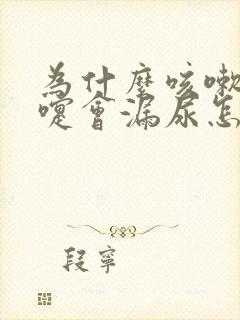 為什麼咳嗽
嚏會漏尿怎
段寧